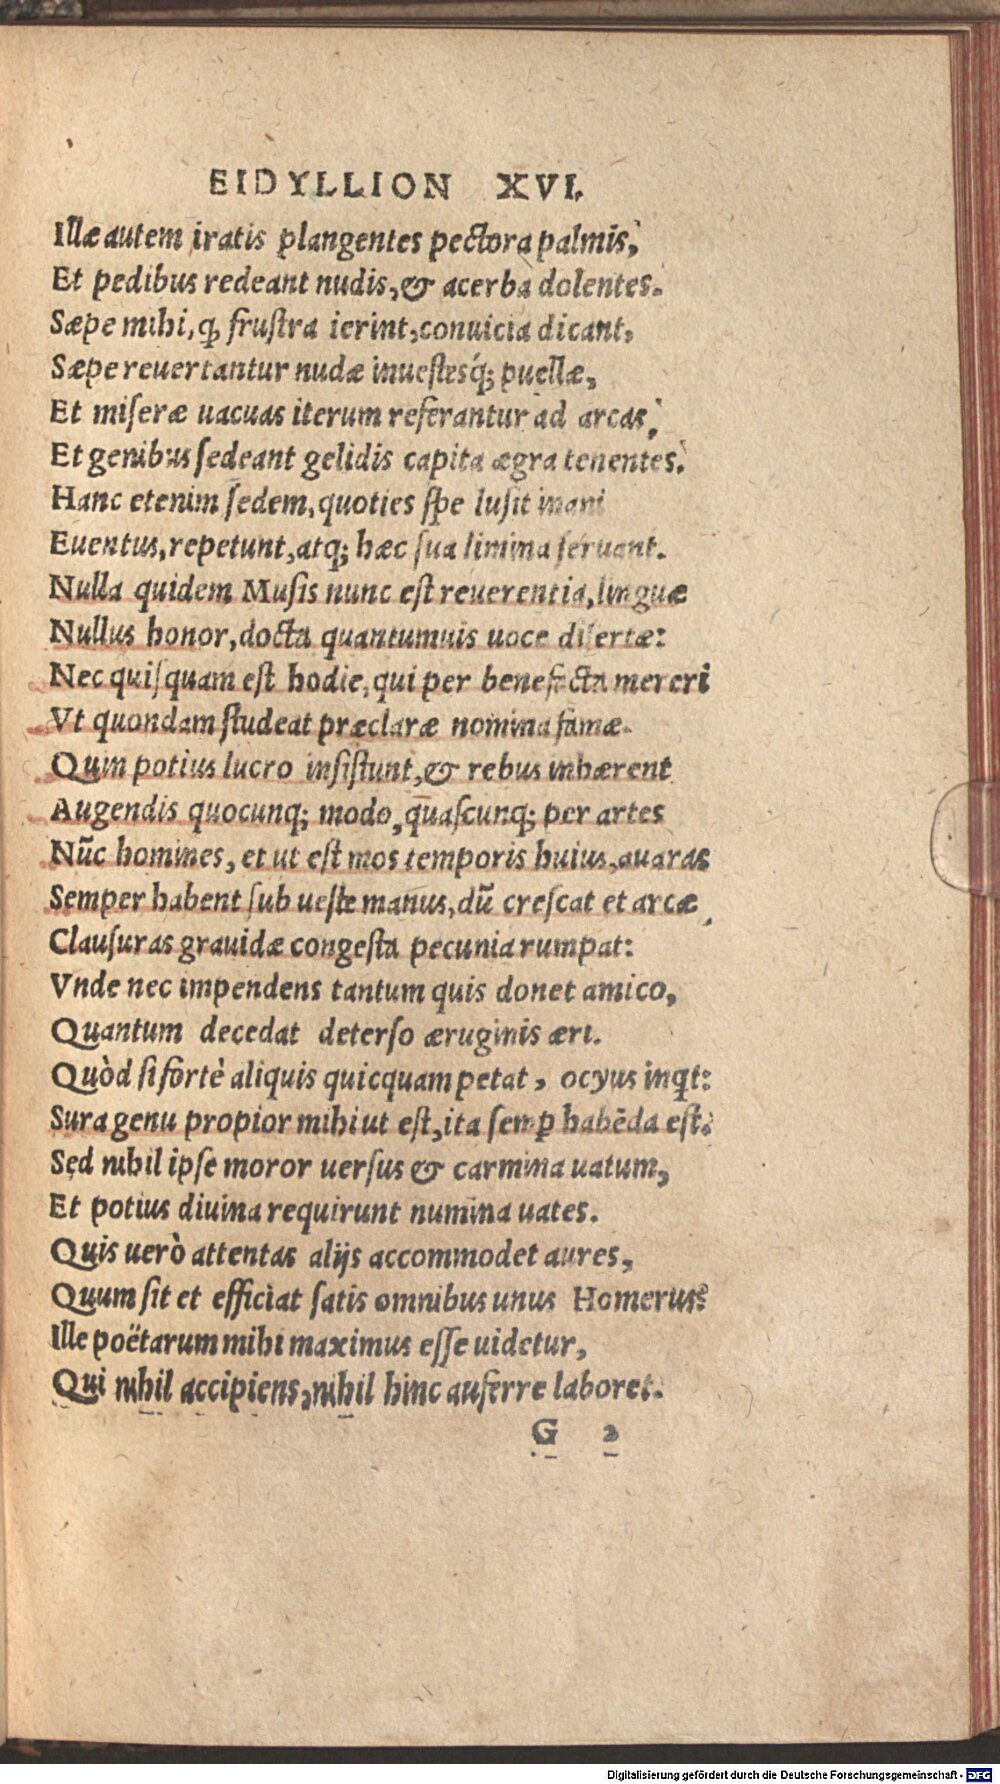 EIDYLLION XVI.
Illæ autem iratis plangentes pectora palmis,
Et pedibus redeant nudis, & acerba dolentes.
Sæpe mihi, ꝙ frustra ierint, conuicia dicant,
Sæpe reuertantur nudæ inuestesq́; puellæ,
Et miseræ uacuas iterum referantur ad arcas,
Et genibus sedeant gelidis capita ægra tenentes.
Hanc etenim sedem, quoties spe lusit inani
Euentus, repetunt, atq; hæc sua limina seruant.
Nulla quidem Musis nunc est reuerentia, linguæ
Nullus honor, docta quantumuis uoce disertæ:
Nec quisquam est hodie, qui per benefacta mereri
Vt quondam studeat præclaræ nomina famæ.
Quin potius lucro insistunt, & rebus inhærent
Augendis quocunq; modo, quascunq; per artes
Nūc homines, et ut est mos temporis huius, auaras
Semper habent sub ueste manus, dū crescat et arcæ
Clausuras grauidæ congesta pecunia rumpat:
Vnde nec impendens tantum quis donet amico,
Quantum decedat deterso æruginis æri.
Quòd si fortè aliquis quicquam petat, ocyus inqt:
Sura genu propior mihi ut est, ita semꝑ habēda est.
Sed nihil ipse moror uersus & carmina uatum,
Et potius diuina requirunt numina uates.
Quis uerò attentas alijs accommodet aures,
Quum sit et efficiat satis omnibus unus Homerus?
Ille poëtarum mihi maximus esse uidetur,
Qui nihil accipiens, nihil hinc auferre laboret.
G 2
Digitalisierung gefördert durch die Deutsche Forschungsgemeinschaft - DFG